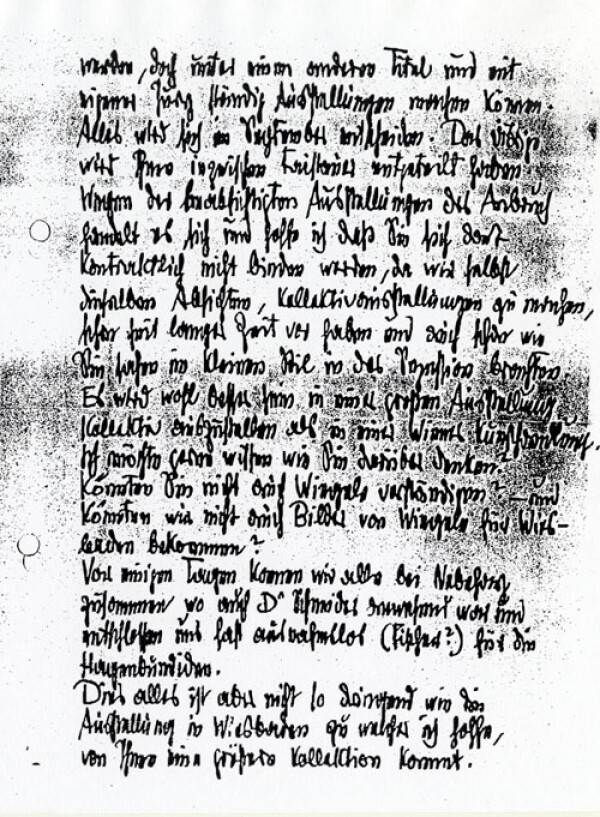 werden, doch unter einem anderen Titel und mit
eigener Jury ständig Ausstellungen machen können.
Alles wird sich im September entscheiden. Das übrige
wird Ihnen inzwischen Faistauer mitgeteilt haben.
Wegen der beabsichtigten Ausstellungen des
handelt es sich und hoffe ich daß Sie sich dort
kontraktlich nicht binden werden, da wir selbst
dieselben Absichten, Kollektivausstellungen zu machen,
schon seit langer Zeit vor haben und auch schon wie
Sie sahen im kleinen Stil in der Sezession brachten.
Es wird wohl besser sein, in einer großen Ausstellung
kollektiv auszustellen als in einer Wiener Kunsthandlung.
Ich möchte gerne wissen wie Sie darüber denken?
Könnten Sie nicht auch Wiegele verständigen? – und
könnten wir nicht auch Bilder von Wiegele für Wies-
baden bekommen?
Vor einigen Tagen kamen wir alle bei Nebehay
zusammen wo auch Dr Schneider anwesend war und
entschlossen uns fast ausnahmslos (Fischer?) für die
Hagenbundidee.
Dies alles ist aber nicht so dringend wie die
Ausstellung in Wiesbaden zu welcher ich hoffe,
von Ihnen eine größere Kollektion kommt.